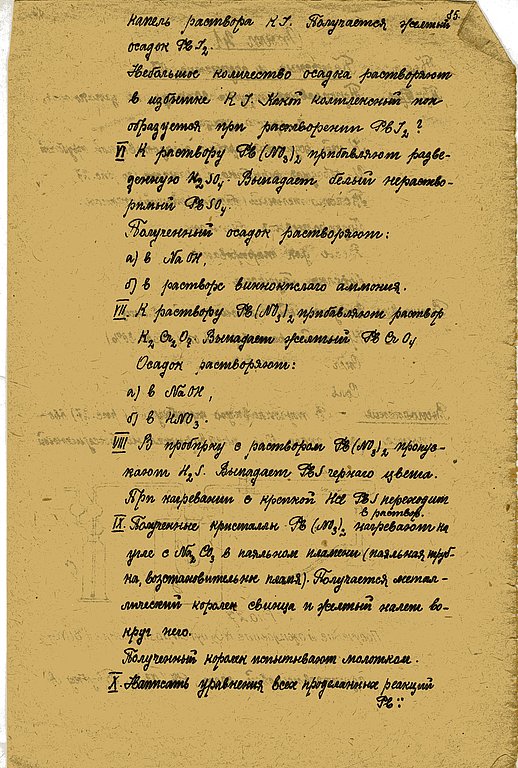 85.
капель раствора KJ. Получается желтый
осадок PbJ2
Небольшое количество осадка растворяют
в избытке KJ. Какой комплексный ион
образуется при растворении PbJ2?
VI К раствору Pb(NO3)2 прибавляют разве-
денную H2SO4. Выпадает белый нераство-
римый PbSO4.
Полученный осадок растворяют:
а) в NaOH
б) в растворе виннокислого аммония.
VII. К раствору Pb(NO3)2 прибавляют раствор
K2Cr2O7. Выпадает желтый PbCrO4
Осадок растворяют:
а) в NaOH,
б) в HNO3.
VIII В пробирку с раствором Pb(NO3)2 пропус-
кают H2S. Выпадает PbS черного цвета.
При нагревании с крепкой HCl PbS переходит
в раствор.
IX. Полученные кристаллы Pb(NO3)2 нагревают на
угле с Na2CO3 в паяльном пламени (паяльная труб-
ка, восстановительное пламя). Получается метал-
лический королек свинца и желтый налет во-
круг него.
Полученный королек испытывают молотком.
X. Написать уравнения всех проделанных реакций
Pb··